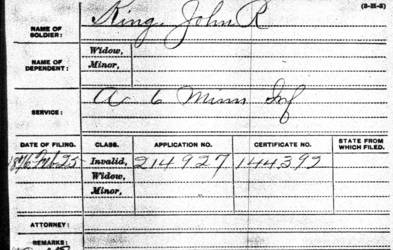 (3-312)
NAME OF SOLDIER: King, John R
NAME OF DEPENDENT: Widow,
Minor,
SERVICE: A 6 Minn Inf
DATE OF FILING. CLASS. APPLICATION NO. CERTIFICATE NO. STATE FROM WHICH FILED.
1876 Feb 25 Invalid, 214927 144392
Widow,
Minor,
ATTORNEY:
REMARKS: